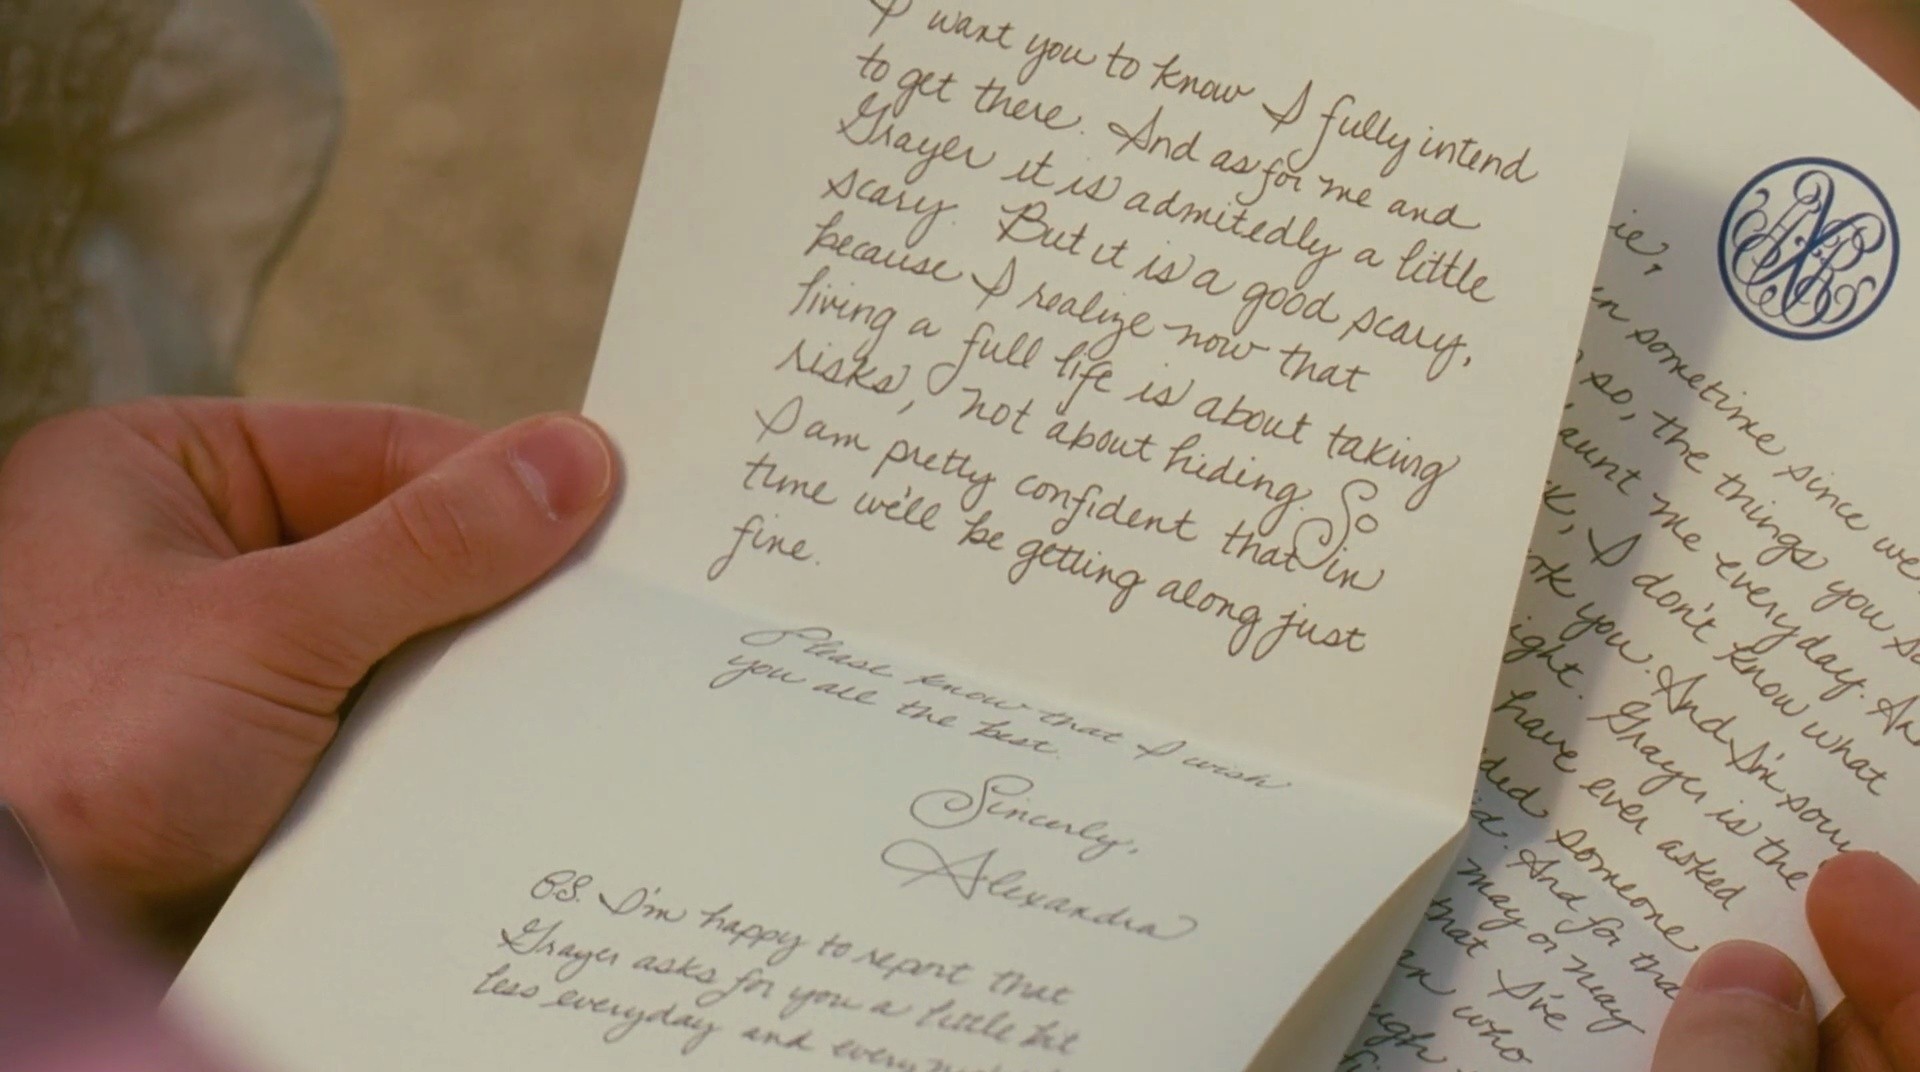 I want you to know I fully intend
to get there. And as for me and
Grayer it is admitedly a little
scary. But it is a good scary,
because I realize now that
living a full life is about taking
risks, not about hiding. So
I am pretty confident that in
time we'll be getting along just
fine.
Please know that I wish
you all the best.
Sincerly,
Alexandra
P.S. I'm happy to report that
Grayer asks for you a little bit
less everyday and every
ie,
sometime since we
so, the things you
me everyday.
I don't know what
you. And I'm sorry
Grayer is the
have ever asked
someone
And for
may or may
that I've
who